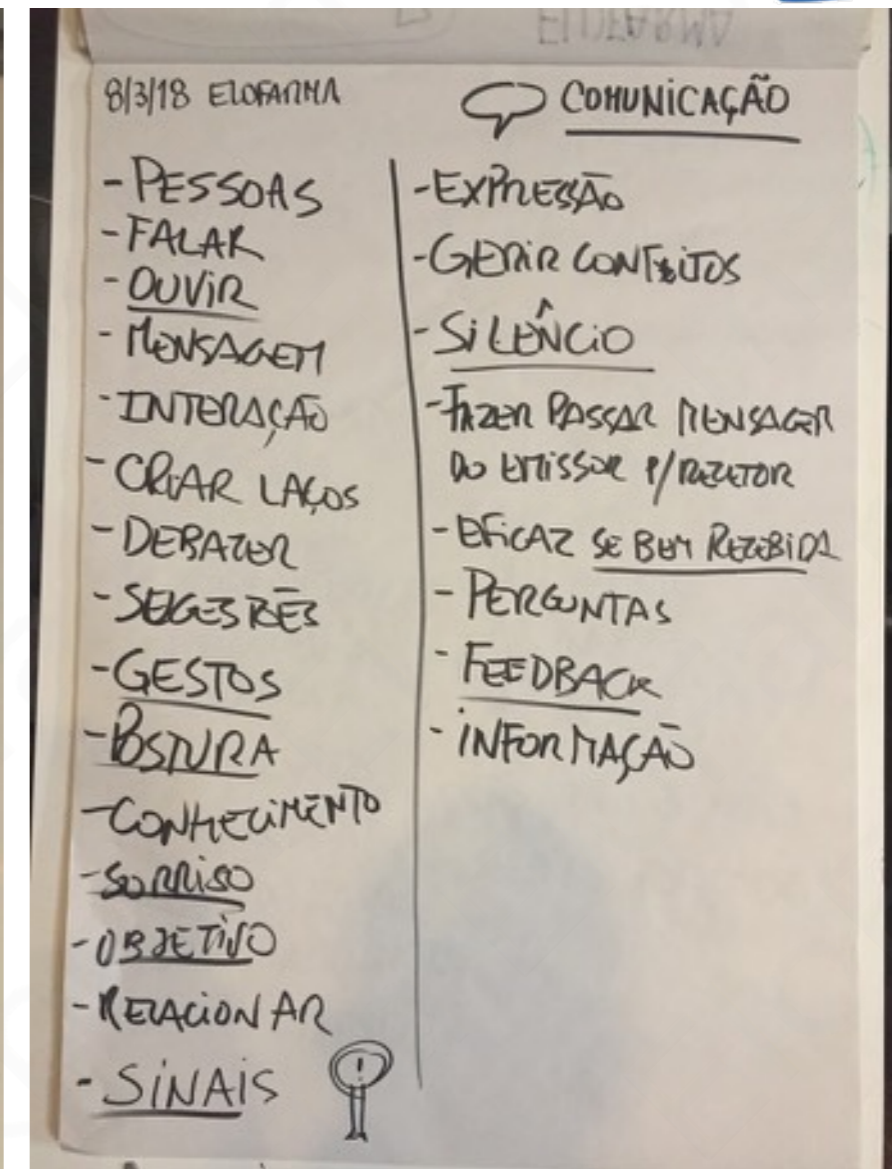 8/3/18 ELOFARMA
COMUNICAÇÃO
- PESSOAS
- FALAR
- OUVIR
- MENSAGEM
- INTERAÇÃO
- CRIAR LAÇOS
- DEBATER
- SUGESTÕES
- GESTOS
- POSTURA
- CONHECIMENTO
- SORRISO
- OBJETIVO
- RELACIONAR
- SINAIS
!
- EXPRESSÃO
- GERIR CONFLITOS
- SILÊNCIO
- FAZER PASSAR MENSAGEM
DO EMISSOR P/RECETOR
- EFICAZ SE BEM RECEBIDA
- PERGUNTAS
- FEEDBACK
- INFORMAÇÃO